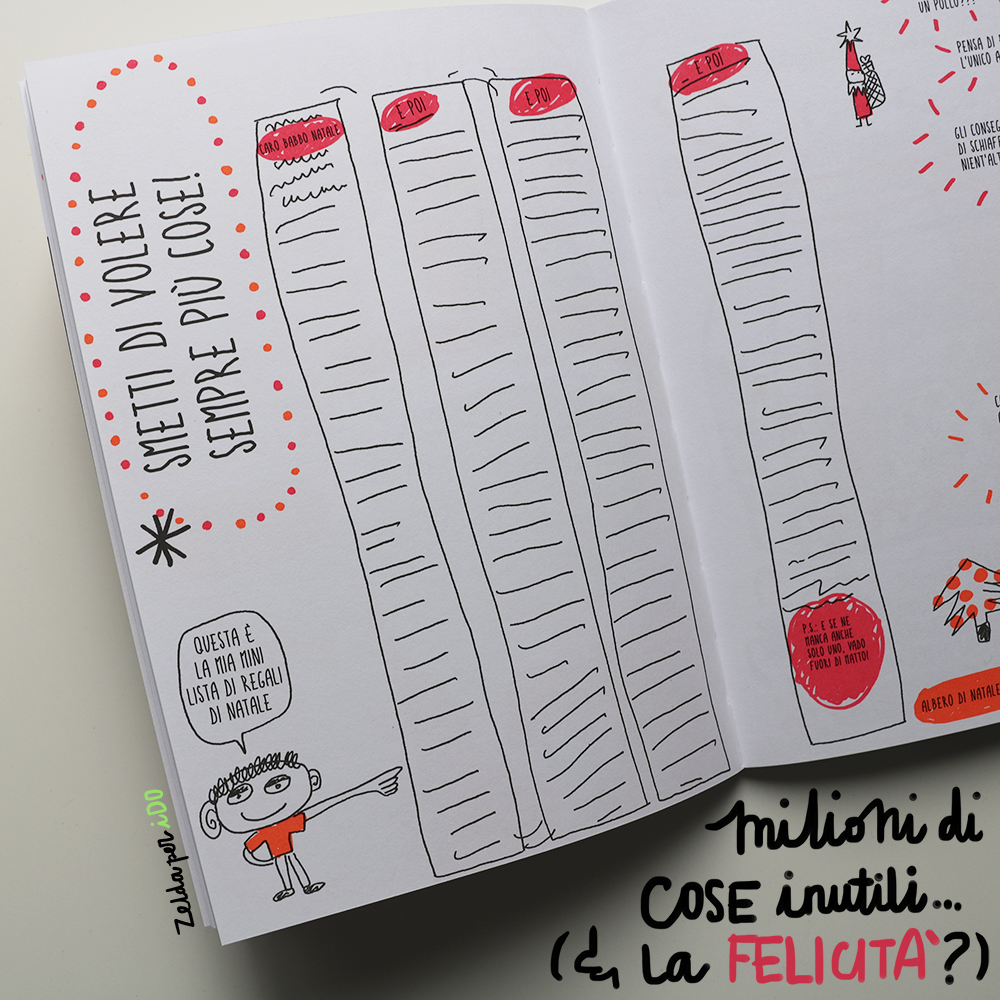 SMETTI DI VOLERE
SEMPRE PIÙ COSE!
CARO BABBO NATALE
E POI
E POI
E POI
QUESTA È
LA MIA MINI
LISTA DI REGALI
DI NATALE
P.S.: E SE NE
MANCA ANCHE
SOLO UNO, VADO
FUORI DI MATTO!
UN POLLO???
PENSA DI
L'UNICO A
GLI CONSEG
DI SCHIAFF
NIENT'AL
ALBERO DI NATALE
Zelda per iDO
milioni di
COSE inutili...
(& La FELICITÀ?)